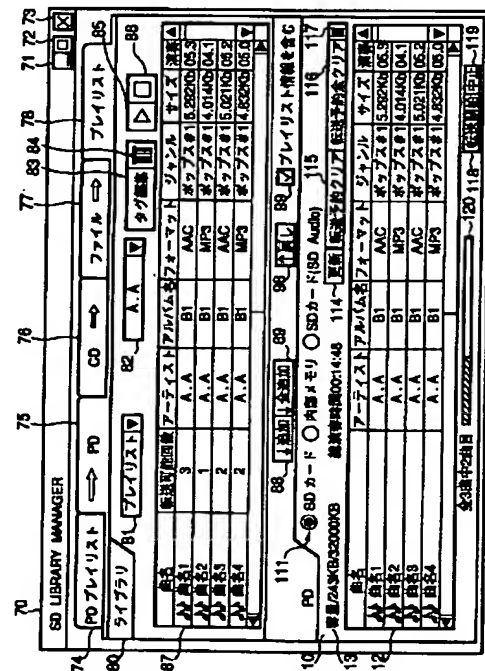 70
71
72
73
SD LIBRARY MANAGER
74
75
76
77
78
PD プレイリスト
⇨ PD
CD ⇨
ファイル ⇨
プレイリスト
80
ライブラリ
81
プレイリスト ▼
82
A.A ▼
83
タグ編集
84
85
▷
□
87
曲名 転送可能回数 アーティスト アルバム名 フォーマット ジャンル サイズ 演奏
曲名1 3 A.A B1 AAC ポップス#1 5.292Kb 05.3
曲名2 1 A.A B1 MP3 ポップス#1 4.014Kb 04.1
曲名3 2 A.A B1 AAC ポップス#1 5.021Kb 05.2
曲名4 2 A.A B1 MP3 ポップス#1 4.832Kb 05.0
88
↓追加
89
↓全追加
↑戻し
☑ プレイリスト情報を含む
PD
111
SD カード
内部メモリ
SDカード(SD Audio)
容量/243KB/32000KB
総演奏時間00:14:48
114
更新
115
転送予約クリア
116
転送予約全クリア
117
曲名 アーティスト アルバム名 フォーマット ジャンル サイズ 演奏
曲名1 A.A B1 AAC ポップス#1 5.292Kb 05.3
曲名2 A.A B1 MP3 ポップス#1 4.014Kb 04.1
曲名3 A.A B1 AAC ポップス#1 5.021Kb 05.2
曲名4 A.A B1 MP3 ポップス#1 4.832Kb 05.0
全3曲中2曲目
120
118
転送開始
中止
119